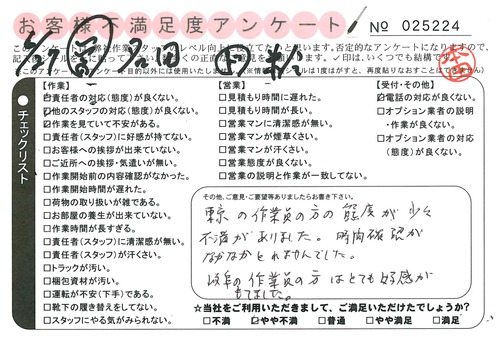 お客様不満足度アンケート
No 025224
このアンケートは弊社作業スタッフのレベル向上に役立てたいと思います。否定的なアンケートになりますので、
(このアンケート作業目的以外には使用いたしません。※情報保護シールは1度がすと、再度貼りなおすことはできません)
チェックリスト
【作業】
責任者の対応(態度)が良くない。
他のスタッフの対応(態度)が良くない。
作業を見ていて不安がある。
□責任者(スタッフ)に好感が持てない。
□お客様への挨拶が出来ていない。
□ご近所への挨拶・気遣いが無い。
□作業開始前の内容確認がなかった。
□作業開始時間が遅れた。
□荷物の取り扱いが雑である。
□お部屋の養生が出来ていない。
□作業時間が長すぎる。
□責任者(スタッフ)に清潔感が無い。
□責任者(スタッフ)が汗くさい。
□トラックが汚い。
□梱包資材が汚い。
□運転が不安(下手)である。
□靴下の履き替えをしてない。
□スタッフにやる気がみられない。
【営業】
□見積もり時間に遅れた。
□見積もり時間が長い。
□営業マンに清潔感が無い。
□営業マンが煙草くさい。
□営業マンが汗くさい。
□営業態度が良くない。
□営業の説明と作業が一致してない。
【受付・その他】
電話の対応が良くない。
□オプション業者の説明
・作業が良くない。
□オプション業者の対応
(態度)が良くない。
その他、ご意見・ご要望等ありましたらお書き下さい。
東京の作業員の方の態度が少々
不満がありました。
とれませんでした。
岐阜の作業員の方はとても好感が
もてました。
☆当社をご利用いただきまして、ご満足いただけたでしょうか?
□不満 ☑やや不満 □普通 □やや満足 □満足